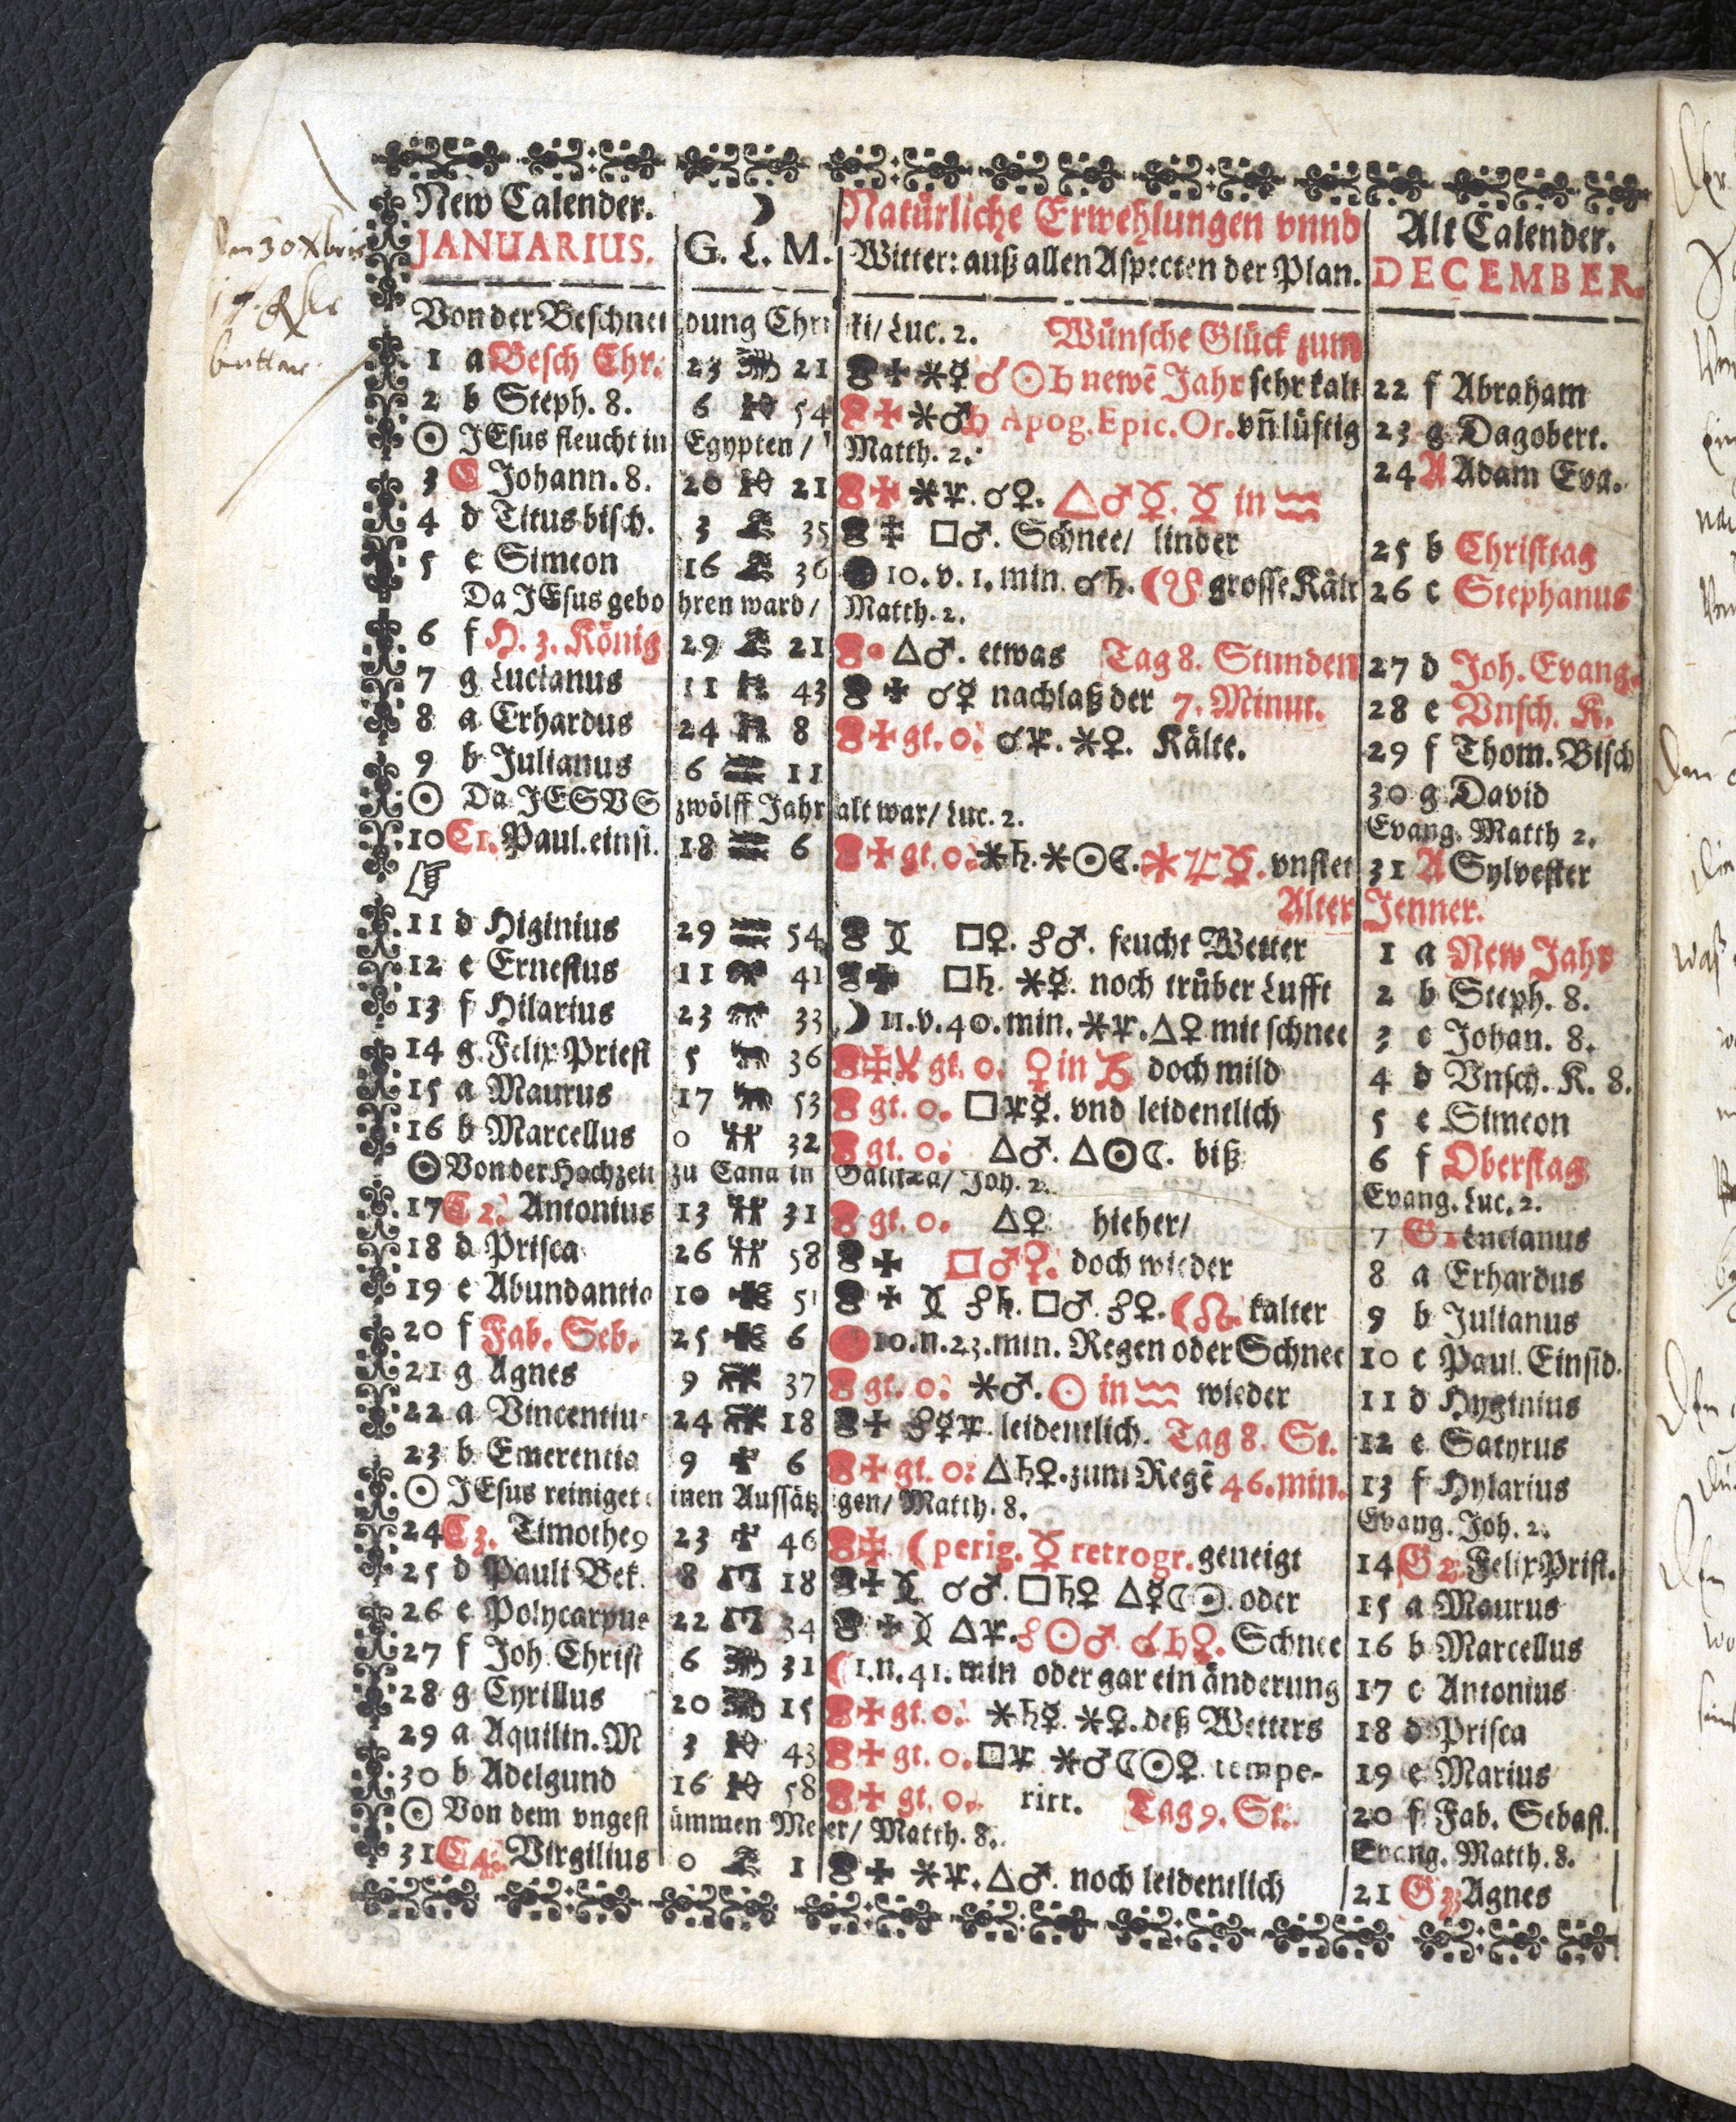 New Calender. ☽ Natürliche Erwehlungen vnnd Alt Calender.
JANUARIUS. G. L. M. Witter: auß allen Aspecten der Plan. DECEMBER.
Von der Beschneidung Christi/ Luc. 2. Wünsche Glück zum
1 a Besch Chr. 23 21 ✠ ⚹ ☿ ☌ ☉ ♄ newē Jahr sehr kalt 22 f Abraham
2 b Steph. 8. 6 54 ✠ ⚹ ♂ ♄ Apog. Epic. Or. vñ lüftig 23 g Dagobert.
☉ JEsus fleucht in Egypten / Matth. 2.
3 C Johann. 8. 20 21 ✠ ⚹ ♃. ☌ ♀. △ ♂ ☿. ☿ in ♒ 24 A Adam Eva.
4 d Titus bisch. 3 35 ✠ □ ♂. Schnee/ linder 25 b Christtag
5 e Simeon 16 36 ● 10. v. 1. min. ☌ ♄. ☾ ☋ grosse Kält 26 c Stephanus
Da JEsus gebohren ward/ Matth. 2.
6 f H. 3. König 29 21 △ ♂. etwas Tag 8. Stunden 27 d Joh. Evang.
7 g Lucianus 11 43 ✠ ☌ ☿ nachlaß der 7. Minut. 28 e Vnsch. K.
8 a Erhardus 24 8 ✠ gt. o. ☌ ♃. ⚹ ♀. Kälte. 29 f Thom. Bisch
9 b Julianus 6 11 30 g David
☉ Da JESVS zwölff Jahr alt war/ Luc. 2. Evang. Matth 2.
10 C1. Paul. einsi. 18 6 ✠ gt. o. ⚹ ♄. ⚹ ☉ ☾. ⚹ ♃ ☿. vnstet 31 A Sylvester
☞ Alter Jenner.
11 d Higinius 29 54 □ ♀. ☍ ♂. feucht Wetter 1 a New Jahr
12 e Ernestus 11 41 ✠ □ ♄. ⚹ ☿. noch trüber Lufft 2 b Steph. 8.
13 f Hilarius 23 33 ☽ 11. v. 40. min. ⚹ ♃. △ ♀ mit schnee 3 c Johan. 8.
14 g Felix Priest 5 36 ✠ gt. o. ♀ in ♑ doch mild 4 d Vnsch. K. 8.
15 a Maurus 17 53 gt. o. □ ♃ ☿. vnd leidentlich 5 e Simeon
16 b Marcellus 0 32 gt. o. △ ♂. △ ☉ ☾. biß 6 f Oberstag
☉ Von der Hochzeit zu Cana in Galilæa/ Joh. 2. Evang. Luc. 2.
17 C 2. Antonius 13 31 gt. o. △ ♀ hieher/ 7 G1 Lucianus
18 d Prisca 26 58 ✠ □ ♂ ♀. doch wieder 8 a Erhardus
19 e Abundantio 10 51 ✠ ☍ ♄. □ ♂. ☍ ♀. ☾ ☊. kalter 9 b Julianus
20 f Fab. Seb. 25 6 10. n. 23. min. Regen oder Schnee 10 c Paul. Einsid.
21 g Agnes 9 37 gt. o. ⚹ ♂. ☉ in ♒ wieder 11 d Hyginius
22 a Vincentiu 24 18 ✠ ☍ ☿ ♃. leidentlich. Tag 8. St. 12 e Satyrus
23 b Emerentia 9 6 ✠ gt. o. △ ♄ ♀. zum Regē 46. min. 13 f Hylarius
☉ JEsus reiniget einen Aussätzigen/ Matth. 8. Evang. Joh. 2.
24 C 3. Timotheꝰ 23 46 ✠ ☾ perig. ☿ retrogr. geneigt 14 G2 Felix Prist.
25 d Pauli Bek. 8 18 ✠ ☌ ♂. □ ♄ ♀ △ ☿ ☾ ☉. oder 15 a Maurus
26 e Polycarpus 22 34 ✠ △ ♃. ☍ ☉ ♂. ☌ ♄ ♀. Schnee 16 b Marcellus
27 f Joh. Christ 6 31 ☾ 1. n. 41. min oder gar ein änderung 17 c Antonius
28 g Cyrillus 20 15 ✠ gt. o. ⚹ ♄ ☿. ⚹ ♀. deß Wetters 18 d Prisca
29 a Aquilin. M 3 43 ✠ gt. o. □ ♃ ⚹ ♂ ☾ ☉ ♀. tempe- 19 e Marius
30 b Adelgund 16 58 ✠ gt. o. rirt. Tag 9. St. 20 f Fab. Sebast.
☉ Von dem vngestümmen Meer/ Matth. 8. Evang. Matth. 8.
31 C 4. Virgilius 0 1 ✠ ⚹ ♃. △ ♂. noch leidentlich 21 G3 Agnes